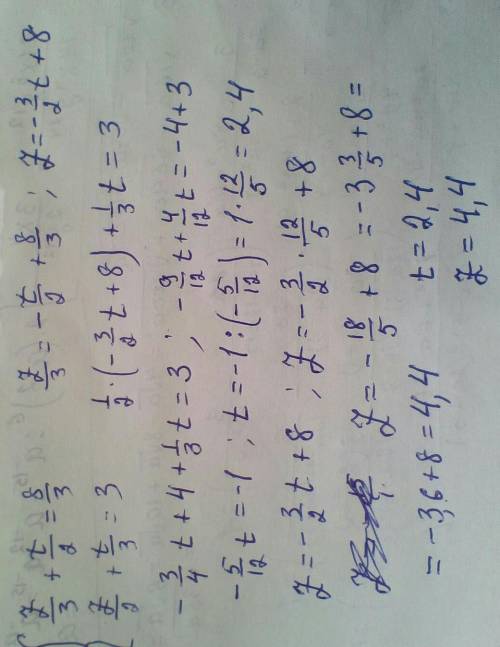 z/3 + t/2 = 8/3   z/3 = -t/2 + 8/3 ; z = -3/2 t + 8
z/2 + t/3 = 3   1/2 · (-3/2 t + 8) + 1/3 t = 3
-3/4 t + 4 + 1/3 t = 3 ; -9/12 t + 4/12 t = -4 + 3
-5/12 t = -1 ; t = -1 : (-5/12) = 1 · 12/5 = 2,4
z = -3/2 t + 8 ; z = -3/2 · 12/5 + 8
z = -18/5 + 8 = -3 3/5 + 8 =
= -3,6 + 8 = 4,4   t = 2,4
z = 4,4